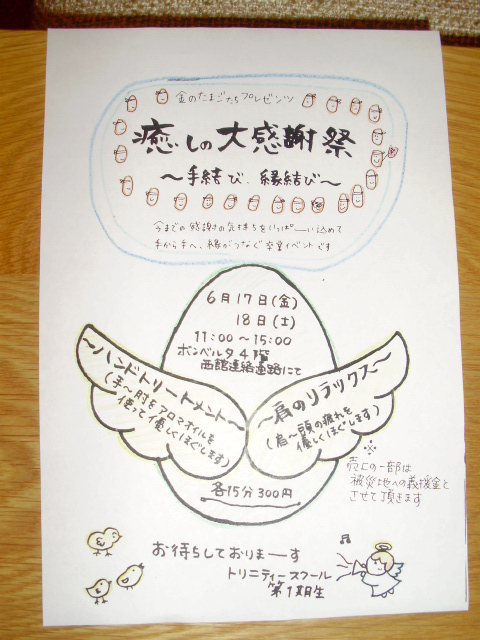 金のたまごたちプレゼンツ
癒しの大感謝祭
～手結び、縁結び～
今までの感謝の気持ちをいっぱーい込めて
手から手へ、縁がつなぐ卒業イベントです
6月17日(金)
18日(土)
11:00～15:00
ボンベルタ4階
西館連絡通路にて
～ハンドトリートメント～
(手～肘をアロマオイルを
使って優しくほぐします)
～肩のリラックス～
(肩～頭の疲れを
優しくほぐします)
各15分300円
※
売上の一部は
被災地への義援金と
させて頂きます
お待ちしておりまーす
トリニティースクール
第1期生